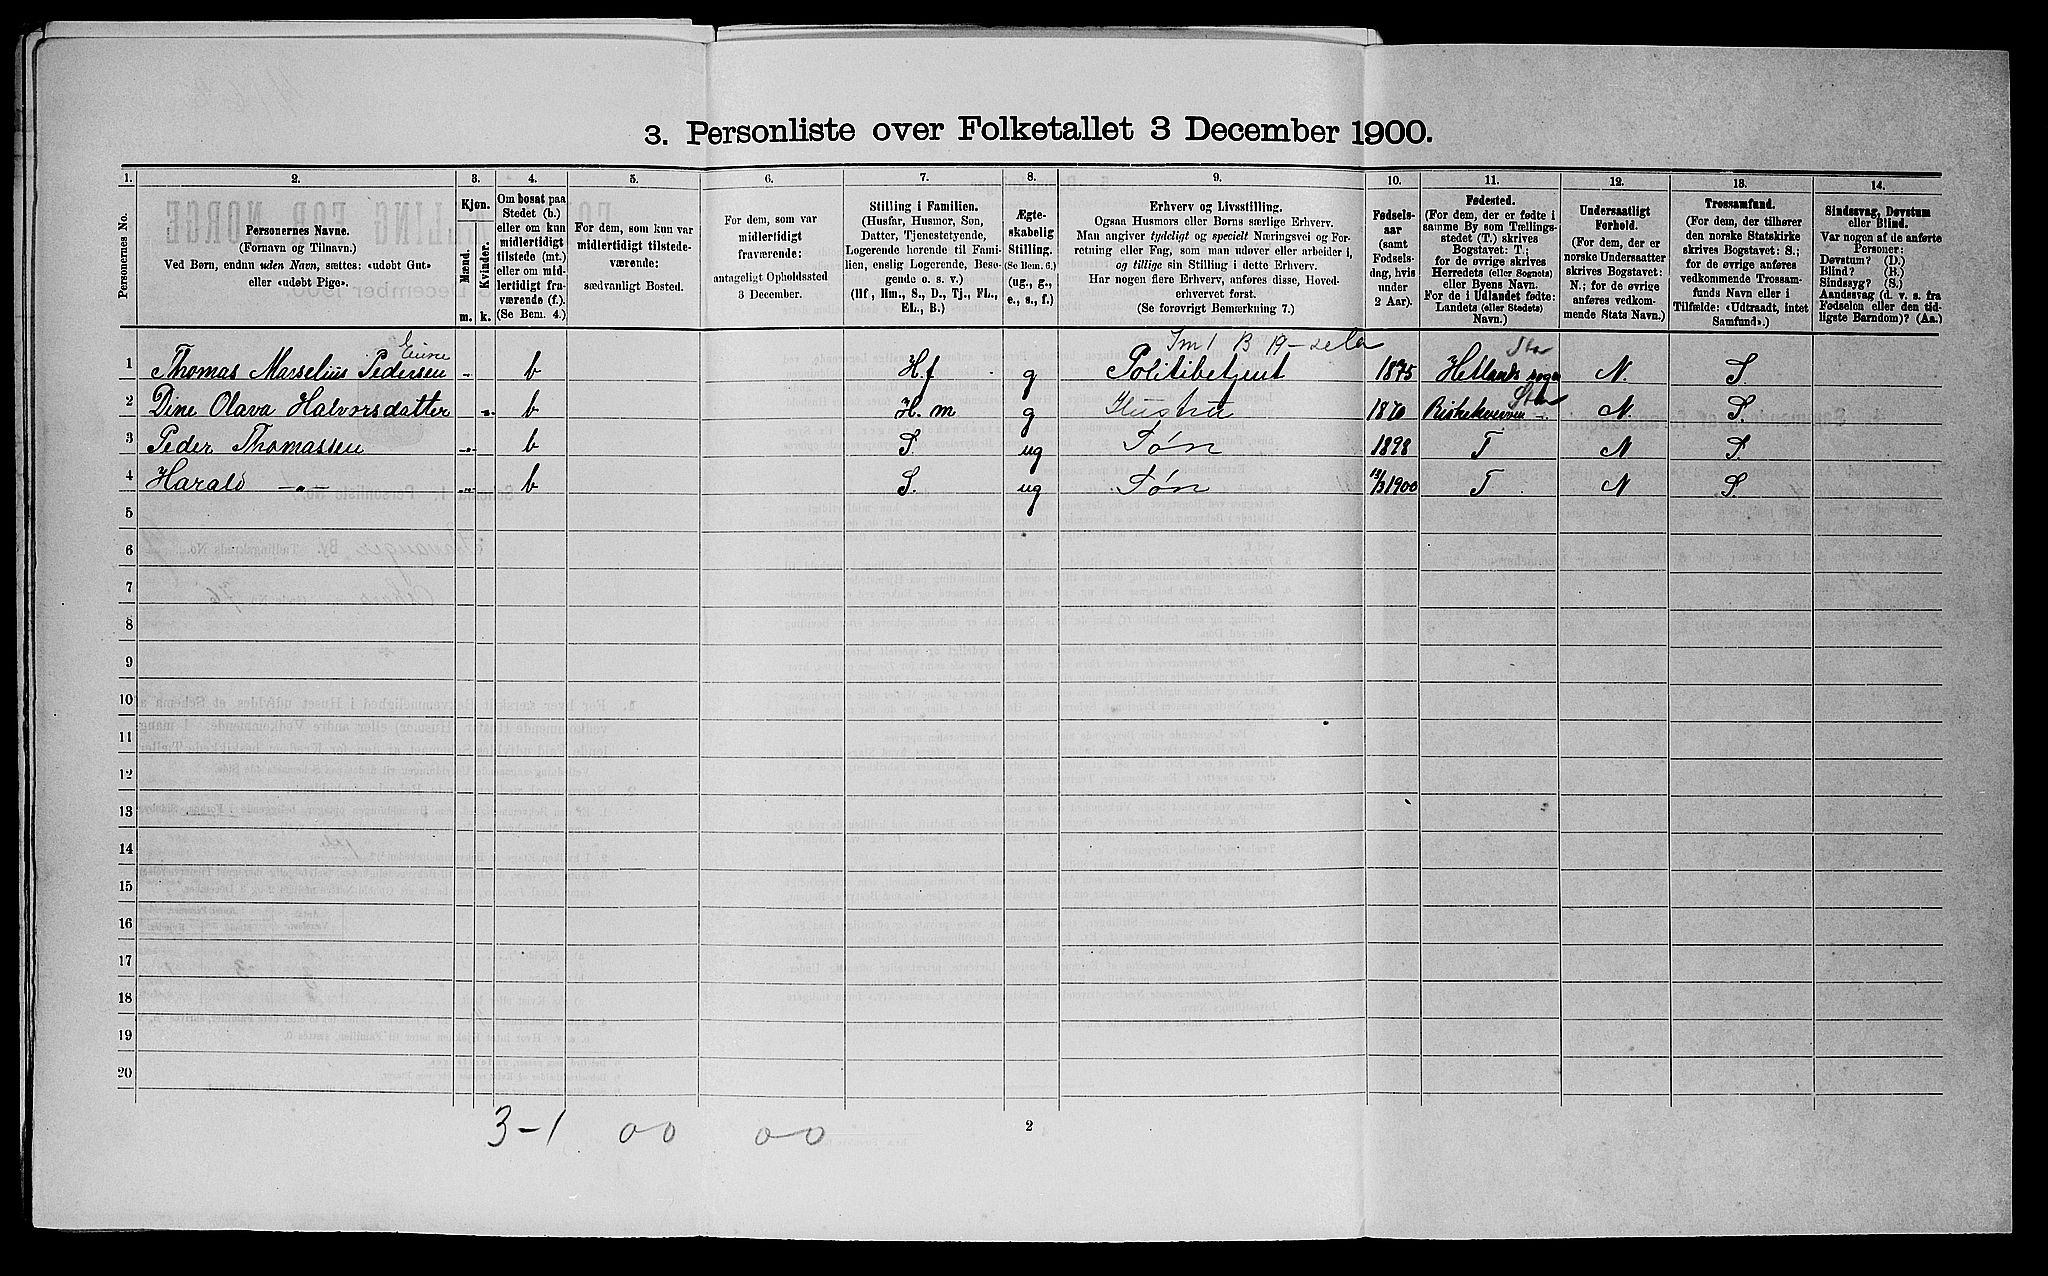 3. Personliste over Folketallet 3 December 1900.
1. 2. 3. 4. 5. 6. 7. 8. 9. 10. 11. 12. 13. 14.
Personernes No.
Personernes Navne.
(Fornavn og Tilnavn.)
Ved Børn, endnu uden Navn, sættes: «udøbt Gut»
eller «udøbt Pige».
Kjøn.
Mænd.
Kvinder.
m. k.
Om bosat paa
Stedet (b.)
eller om kun
midlertidigt
tilstede (mt.)
eller om mid-
lertidigt fra-
værende (f.).
(Se Bem. 4.)
For dem, som kun var
midlertidigt tilstede-
værende:
sædvanligt Bosted.
For dem, som var
midlertidigt
fraværende:
antageligt Opholdssted
3 December.
Stilling i Familien.
(Husfar, Husmor, Søn,
Datter, Tjenestetyende,
Logerende hørende til Fami-
lien, enslig Logerende, Besø-
gende o. s. v.)
(Hf, Hm., S., D., Tj., FL.,
EL., B.)
Ægte-
skabelig
Stilling.
(Se Bem. 6.)
(ug., g.,
e., s., f.)
Erhverv og Livsstilling.
Ogsaa Husmors eller Børns særlige Erhverv.
Man angiver tydeligt og specielt Næringsvei og For-
retning eller Fag, som man udøver eller arbeider i,
og tillige sin Stilling i dette Erhverv.
Har nogen flere Erhverv, anføres disse, Hoved-
erhvervet først.
(Se forøvrigt Bemærkning 7.)
Fødsels-
aar
(samt
Fødsels-
dag, hvis
under
2 Aar).
Fødested.
(For dem, der er fødte i
samme By som Tællings-
stedet (T.) skrives
Bogstavet: T;
for de øvrige skrives
Herredets (eller Sognets)
eller Byens Navn.
For de i Udlandet fødte:
Landets (eller Stedets)
Navn.)
Undersaatligt
Forhold.
(For dem, der er
norske Undersaatter
skrives Bogstavet:
N.; for de øvrige
anføres vedkom-
mende Stats Navn.)
Trossamfund.
(For dem, der tilhører
den norske Statskirke
skrives Bogstavet: S.;
for de øvrige anføres
vedkommende Trossam-
funds Navn eller i
Tilfælde: «Udtraadt, intet
Samfund».)
Sindssvag, Døvstum
eller Blind.
Var nogen af de anførte
Personer:
Døvstum? (D.)
Blind? (B.)
Sindssyg? (S.)
Aandssvag (d. v. s. fra
Fødselen eller den tid-
ligste Barndom)? (Aa.)
1 Thomas Marselius Pedersen b H.f g Politibetjent 1875 Hetlands sogn N. S.
2 Dine Olava Halvorsdatter b H.m g Hustru 1870 N S.
3 Peder Thomassen b S. ug Søn 1898 T N S.
4 Harald -„- b S. ug Søn 13/3 1900 T N S.
5
6
7
8
9
10
11
12
13
14
15
16
17
18
19
20
3-1 00 00 2